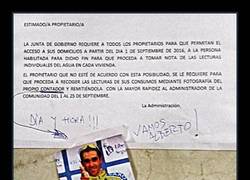 ESTIMADO/A PROPIETARIO/A
LA JUNTA DE GOBIERNO REQUIERE A TODOS LOS PROPIETARIOS PARA QUE PERMITAN EL
ACCESO A SUS DOMICILIOS A PARTIR DEL DIA 1 DE SEPTIEMBRE DE 2016, A LA PERSONA
HABILITADA PARA DICHO FIN PARA QUE PROCEDA A TOMAR NOTA DE LAS LECTURAS
INDIVIDUALES DEL AGUA EN CADA VIVIENDA.
EL PROPIETARIO QUE NO ESTÉ DE ACUERDO CON ESTA POSIBILIDAD, SE LE REQUIERE PARA
QUE PROCEDA A RECOGER LAS LECTURAS DE SUS CONSUMOS MEDIANTE FOTOGRAFÍA DEL
PROPIO CONTADOR Y REMITIÉNDOLA CON LA MAYOR RAPIDEZ AL ADMINISTRADOR DE LA
COMUNIDAD DEL 1 AL 25 DE SEPTIEMBRE.
La Administración.
DÍA Y HORA!!!
¡VAMOS
ALBERTO!